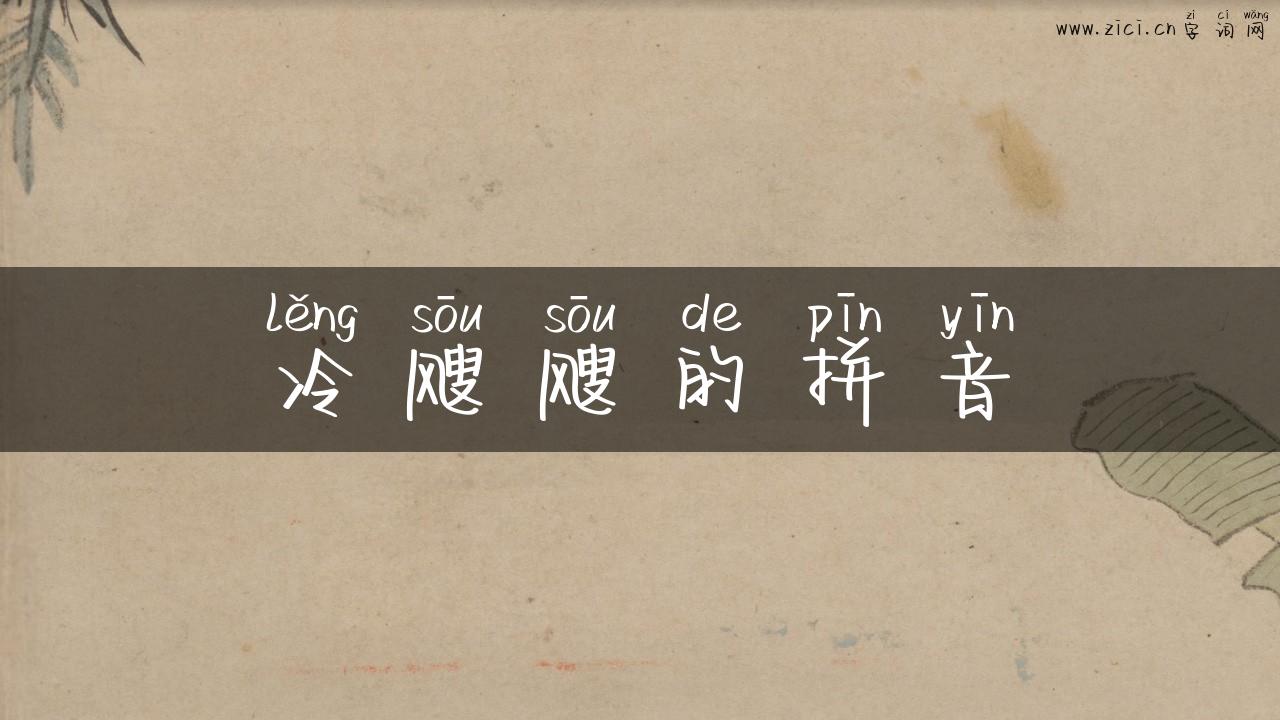 zì cí wǎng
www.zici.cn 字词网
lěng sōu sōu de pīn yīn
冷飕飕的拼音